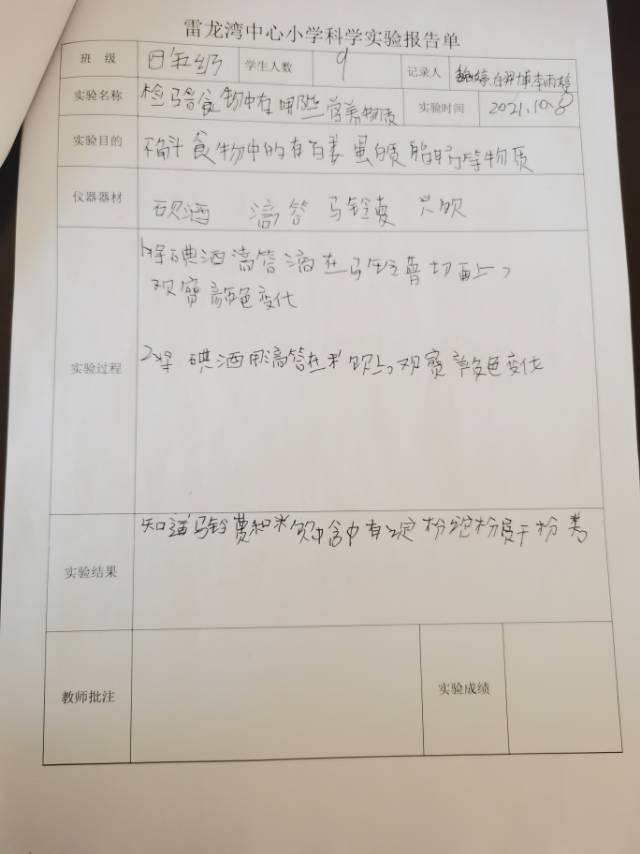 雷龙湾中心小学科学实验报告单
班 级 四年级 学生人数 9 记录人
实验名称 检验食物中有哪些营养物质 实验时间 2021.10.8
实验目的 食物中的有 蛋白质 脂肪等物质
仪器器材 碘酒 滴管 马铃薯 米饭
实验过程
1将碘酒滴管滴在马铃薯切面上,
观察颜色变化
2将 碘酒用滴管在米饭上,观察颜色变化
实验结果 知道马铃薯和米饭中含中有淀粉淀粉属于粉类
教师批注 实验成绩